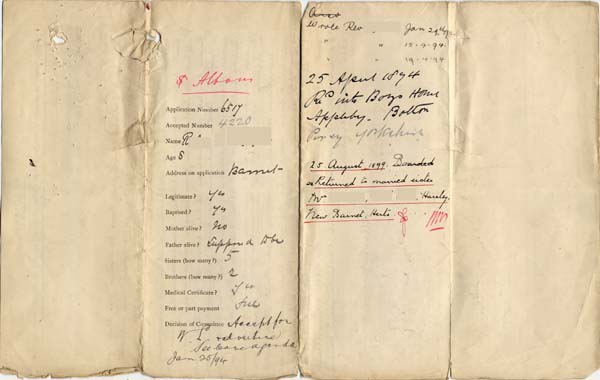 St Albans
Application Number 6517
Accepted Number 4220
Name R
Age 8
Address on application Barnet
Legitimate? Yes
Baptised? Yes
Mother alive? No
Father alive? Supposed to be
Sisters (how many?) 5
Brothers (how many?) 2
Medical Certificate? Yes
Free or part payment Free
Decision of Committee Accept for
W. L.
See Case agenda
Jan 25/94
Wrote Rev Jan 29th/94
" 12.4.94.
" 19.4.94
25 April 1894
Rd into Boys Home
Appleby. Bolton
Percy Yorkshire
25 August, 1899. Boarded
Returned to married sister
Mr Hadley
New Barnet, Herts.